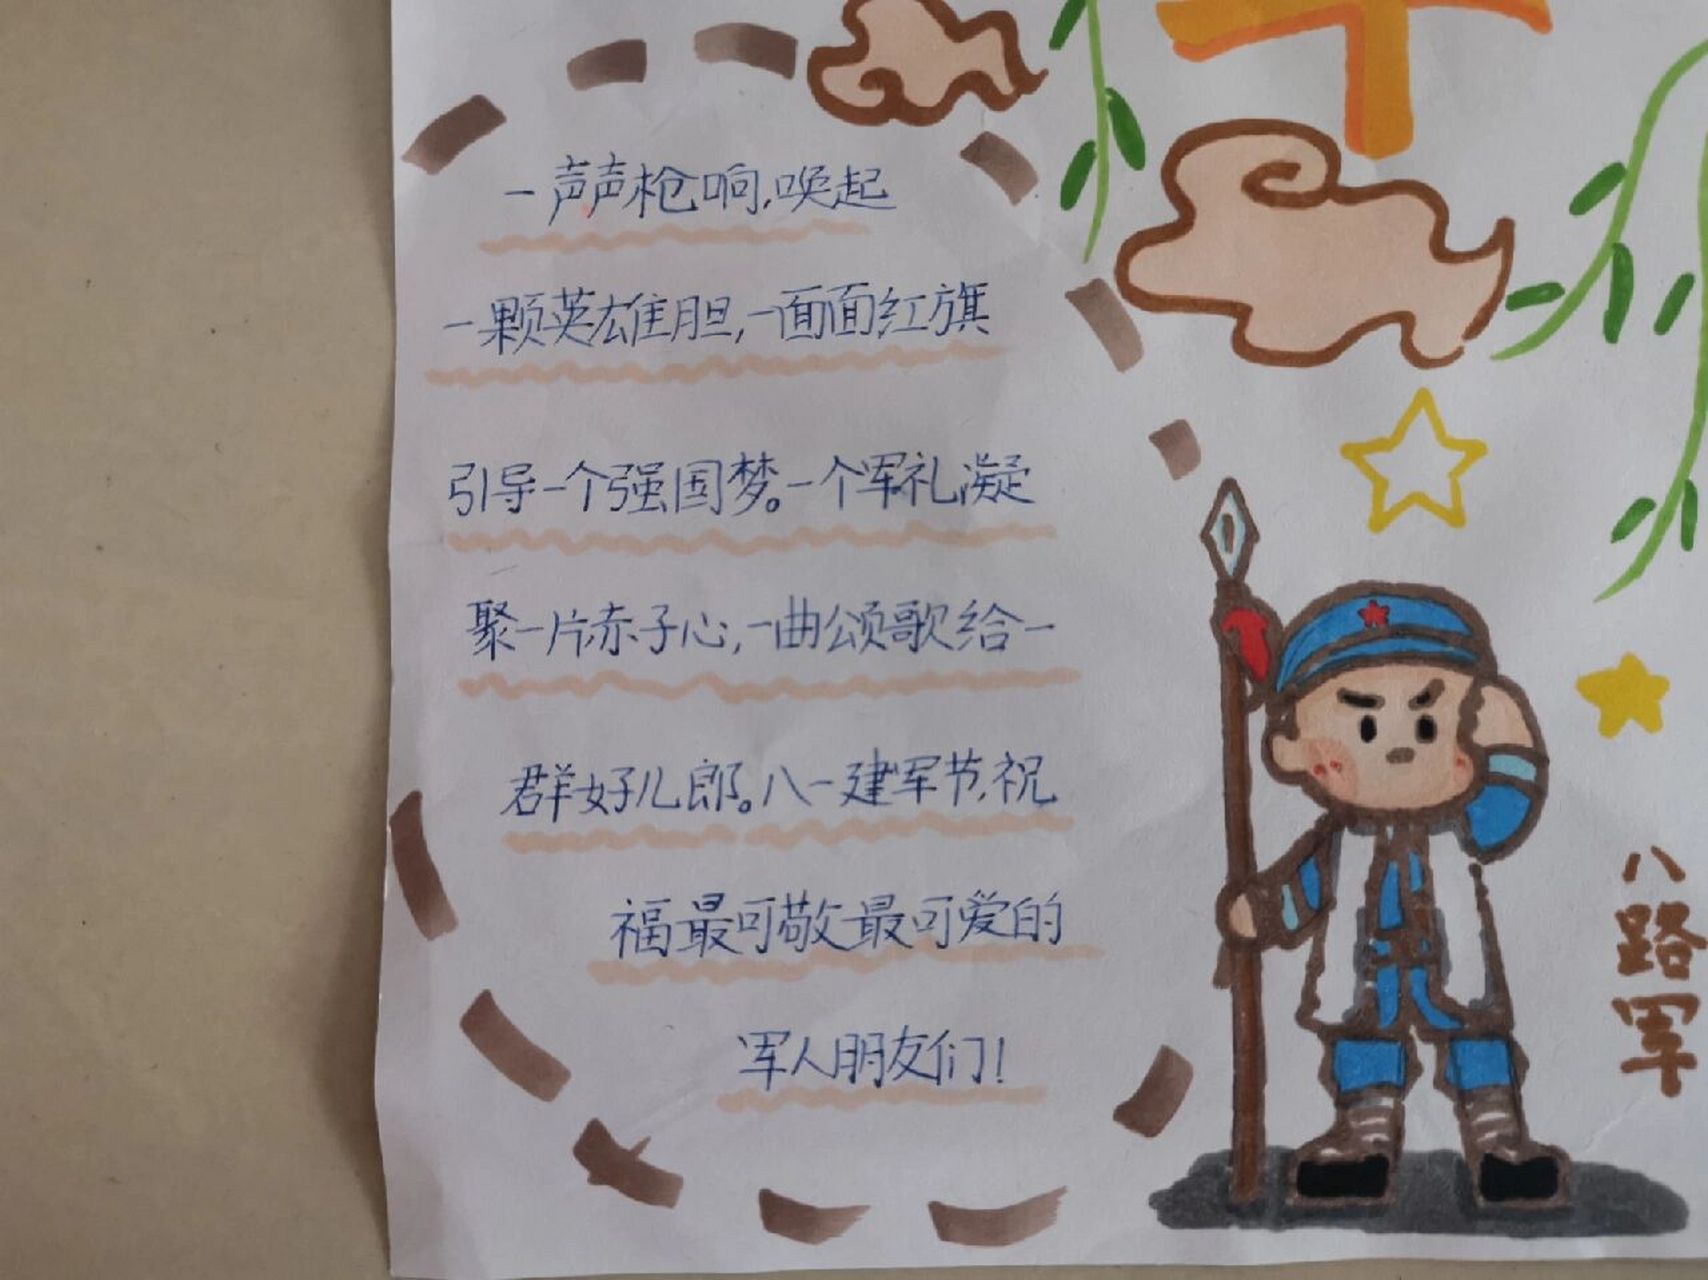 一声声枪响,唤起
一颗英雄胆,一面面红旗
引导一个强国梦。一个军礼凝
聚一片赤子心,一曲颂歌给一
群好儿郎。八一建军节,祝
福最可敬最可爱的
军人朋友们!
八路军